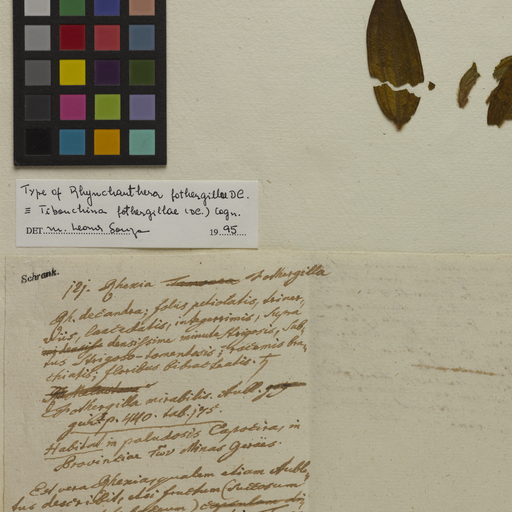 Type of Rhynchanthera fothergillae DC.
≡ Tibouchina fothergillae (DC.) Cogn.
DET. M. Leoni Souza 1995
Schrank.
121. Rhexia Fothergilla
Rh. decandra; foliis petiolatis, triner-
viis, lanceolatis, integerrimis, supra
densissime minute strigosis, sub-
tus strigoso-tomentosis; racemis bra-
chiatis; floribus bibracteatis. ♄
Fothergilla mirabilis. Aubl.
guid. p. 440. tab. 175.
Habitat in paludosis Capoeira, in
Provinciae Minas Geräes.
Est vera Rhexia, qualem etiam Aubl-
tus describit, etsi fructum (succosum